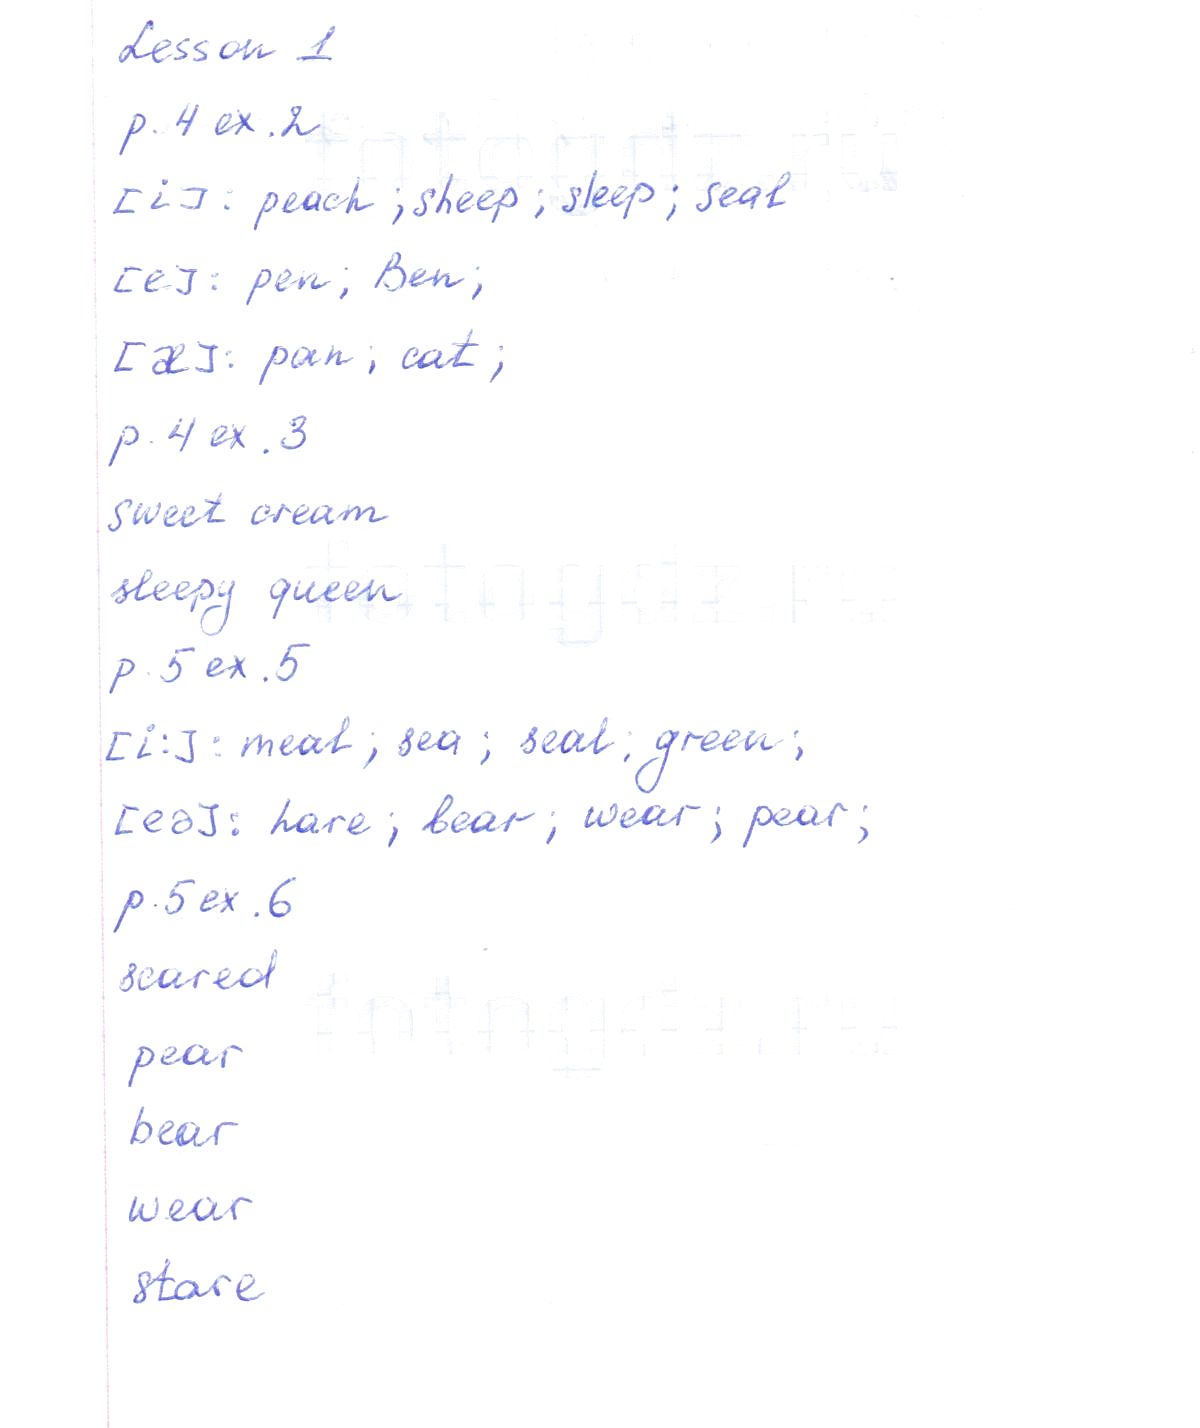 Lesson 1
p. 4 ex. 2
[i]: peach; sheep; sleep; seal
[e]: pen; Ben;
[æ]: pan; cat;
p. 4 ex. 3
sweet cream
sleepy queen
p. 5 ex. 5
[i:]: meal; sea; seal; green;
[eə]: hare; bear; wear; pear;
p. 5 ex. 6
scared
pear
bear
wear
stare